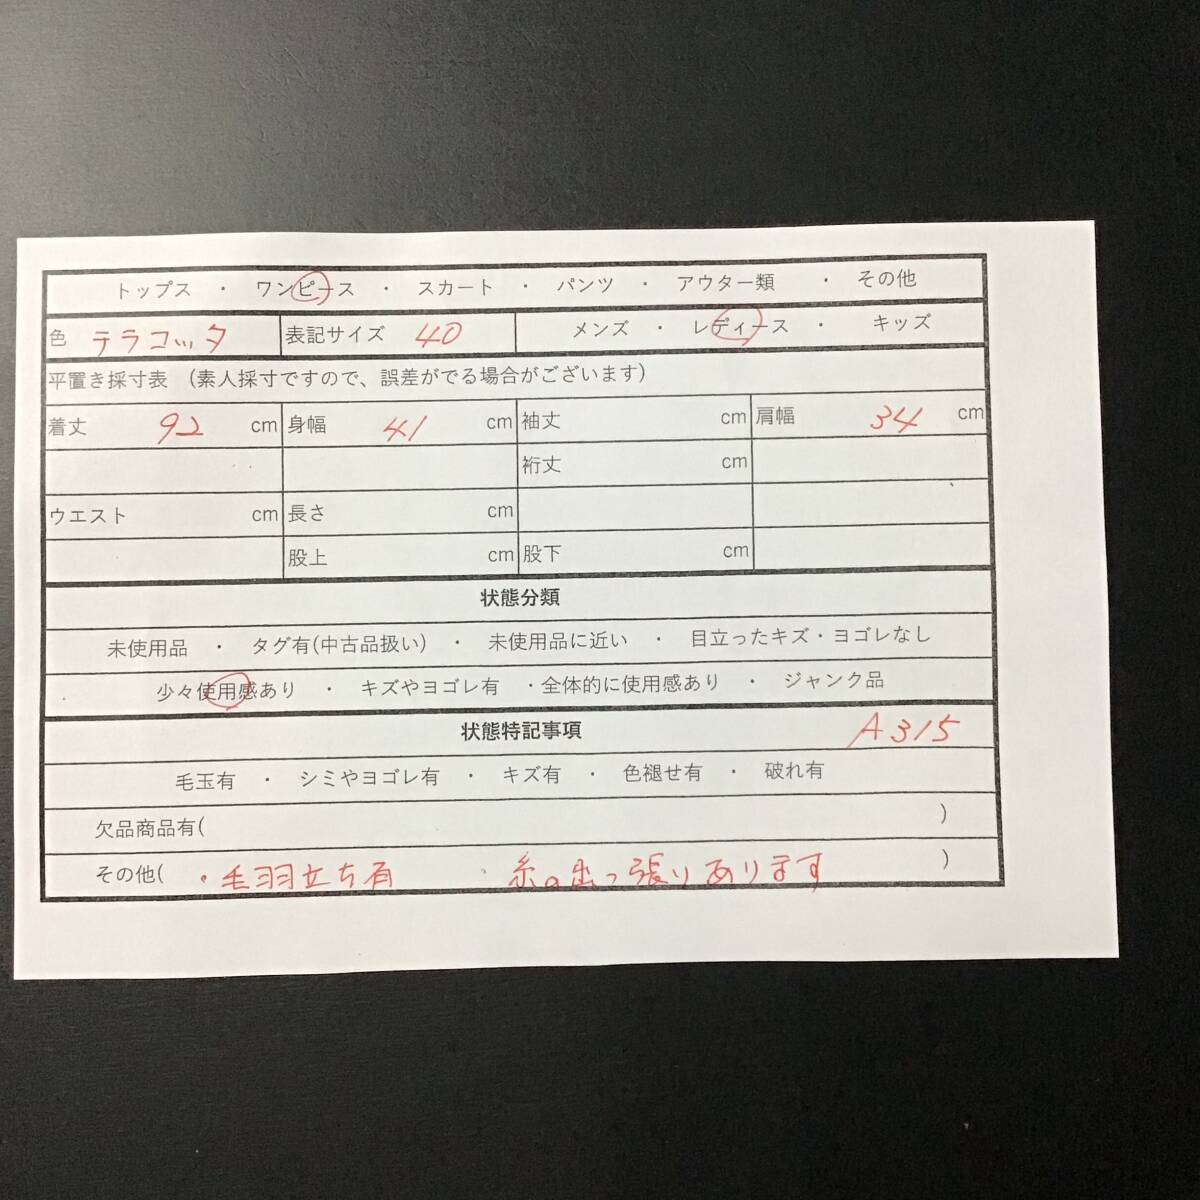 トップス ・ ワンピース ・ スカート ・ パンツ ・ アウター類 ・ その他
色 テラコッタ 表記サイズ 40 メンズ ・ レディース ・ キッズ
平置き採寸表 (素人採寸ですので、誤差がでる場合がございます)
着丈 92 cm 身幅 41 cm 袖丈 cm 肩幅 34 cm
裄丈 cm
ウエスト cm 長さ cm
股上 cm 股下 cm
状態分類
未使用品 ・ タグ有(中古品扱い) ・ 未使用品に近い ・ 目立ったキズ・ヨゴレなし
少々使用感あり ・ キズやヨゴレ有 ・全体的に使用感あり ・ ジャンク品
状態特記事項 A315
毛玉有 ・ シミやヨゴレ有 ・ キズ有 ・ 色褪せ有 ・ 破れ有
欠品商品有( )
その他( ・毛羽立ち有 ・糸の出っ張りあります )